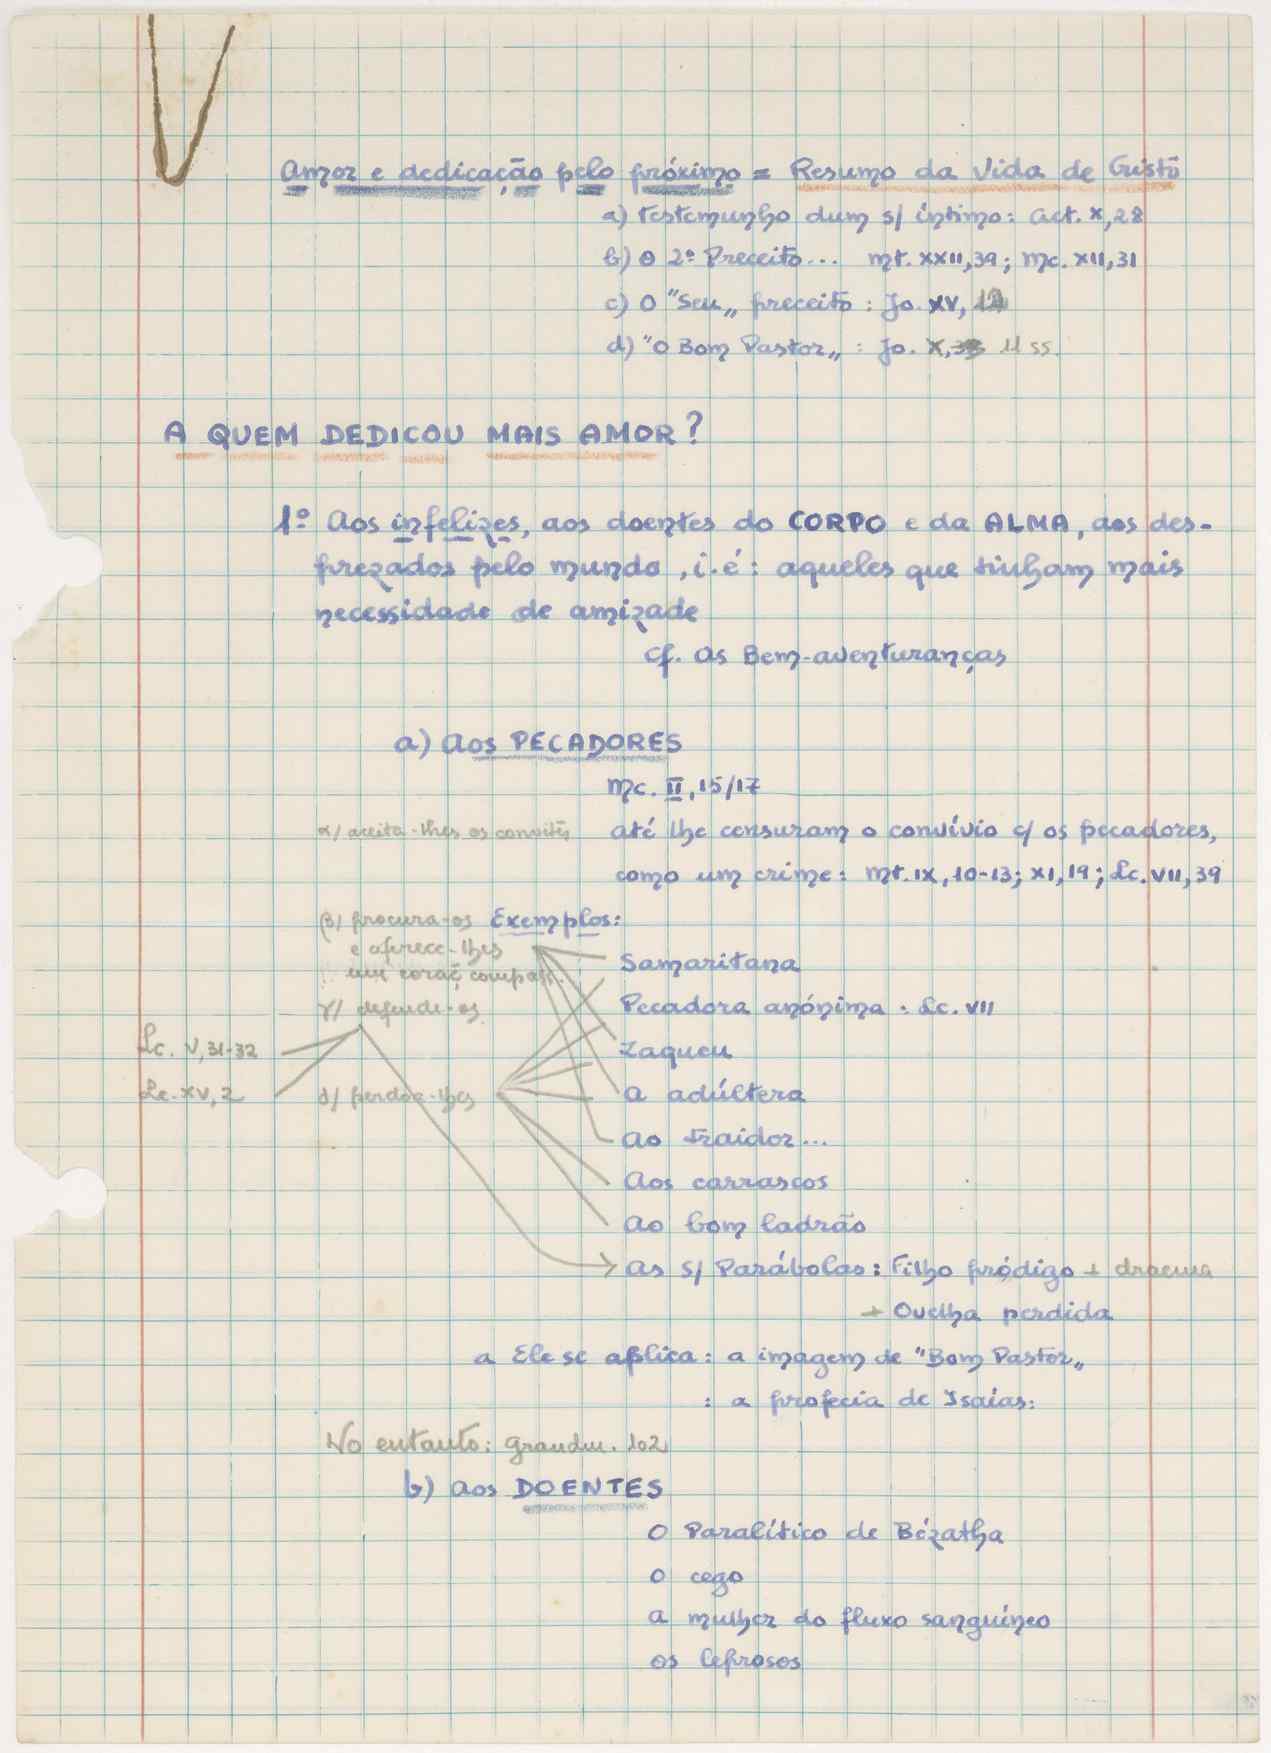 Amor e dedicação pelo próximo = Resumo da Vida de Cristo
a) testemunho dum s/ íntimo: Act. X,28
b) O 2º Preceito... Mt. XXII,39; Mc. XII,31
c) O "Seu„ preceito: Jo. XV,
d) "O Bom Pastor„: Jo. X, 11 ss.
A QUEM DEDICOU MAIS AMOR?
1º Aos infelizes, aos doentes do CORPO e da ALMA, aos des-
prezados pelo mundo, i.é: aqueles que tinham mais
necessidade de amizade
cf. as Bem-aventuranças
a) Aos PECADORES
Mc. II,15/17
α/ aceita-lhes os convites até lhe censuram o convívio c/ os pecadores,
como um crime: Mt. IX,10-13; XI,19; Lc. VII,39
β/ procura-os Exemplos:
e oferece-lhes
um coraç. compass.
Samaritana
γ/ defende-os
Pecadora anónima: Lc. VII
Lc. V,31-32 Zaqueu
Lc. XV,2 δ/ perdoa-lhes A adúltera
Ao Traidor...
Aos carrascos
Ao bom ladrão
As s/ Parábolas: Filho pródigo + dracma
+ Ovelha perdida
a Ele se aplica: a imagem de "Bom Pastor„
: a profecia de Isaias:
No entanto: Grandm. 102
b) Aos DOENTES
O Paralítico de Bézatha
O cego
A mulher do fluxo sanguíneo
Os leprosos